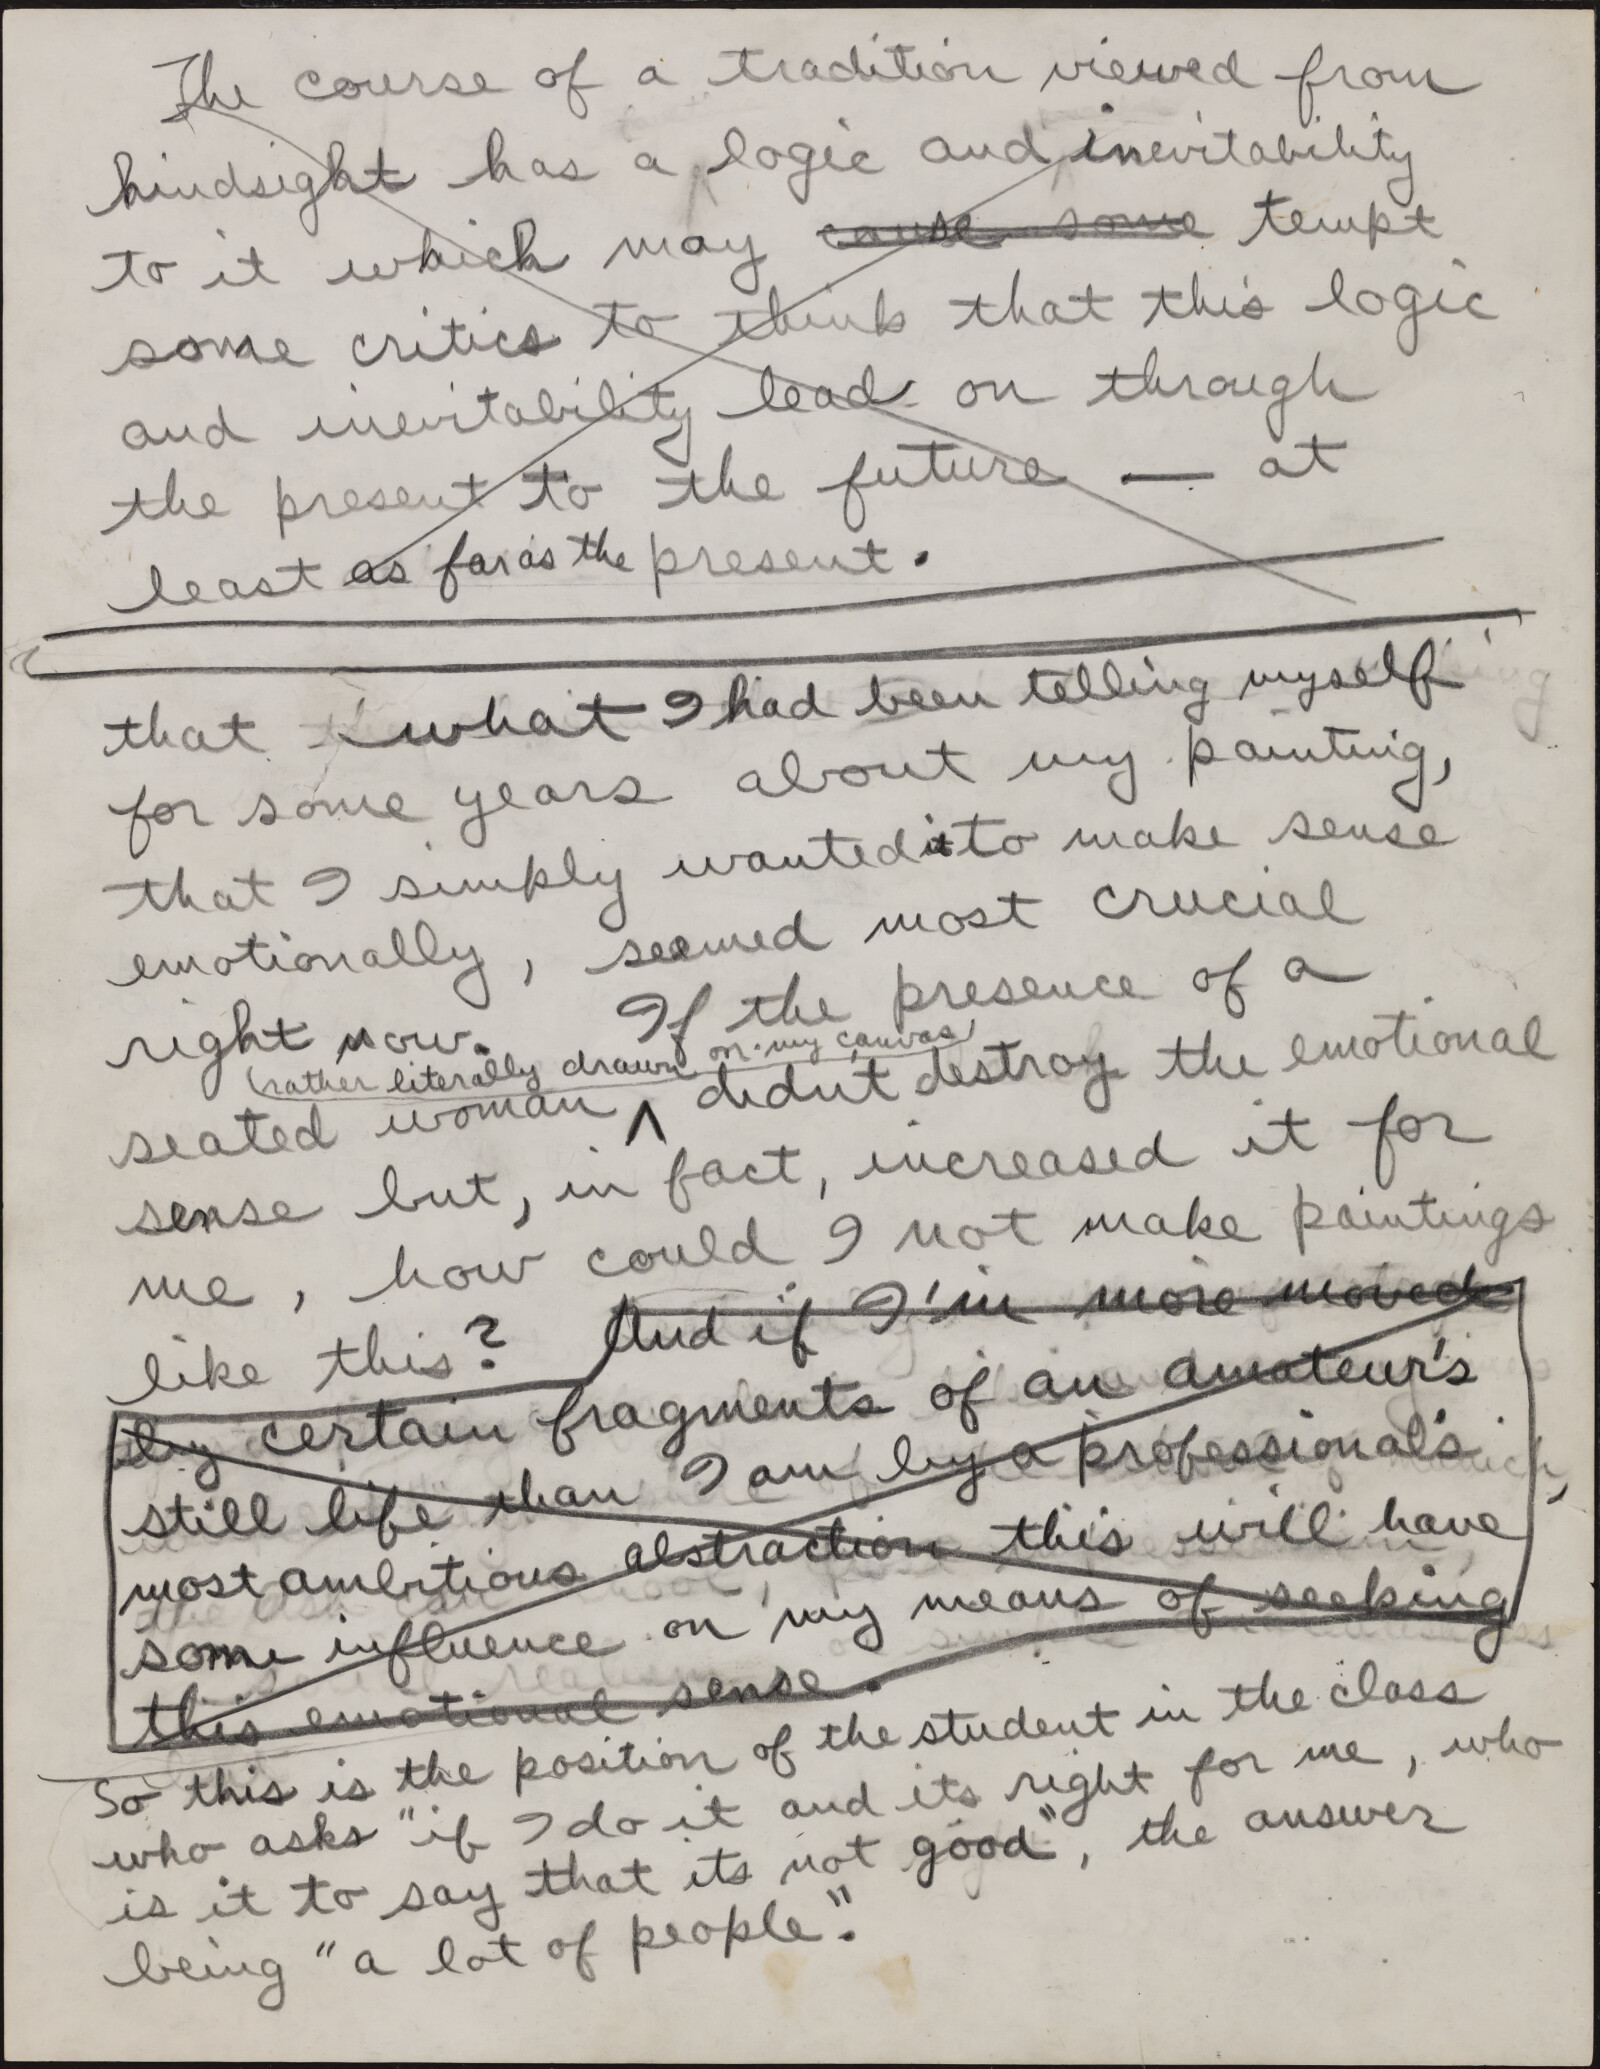 The course of a tradition viewed from
hindsight has a logic and inevitability
to it which may cause some tempt
some critics to think that this logic
and inevitability lead on through
the present to the future — at
least as far as the present.
that what I had been telling myself
for some years about my painting,
that I simply wanted it to make sense
emotionally, seemed most crucial
right now. If the presence of a
(rather literally drawn on my canvas)
seated woman ^ didn't destroy the emotional
sense but, in fact, increased it for
me, how could I not make paintings
like this? And if I'm more moved
by certain fragments of an amateur's
still life than I am by a professional's
most ambitious abstraction this will have
some influence on my means of seeking
this emotional sense.
So this is the position of the student in the class
who asks "if I do it and its right for me, who
is it to say that its not good", the answer
being "a lot of people".